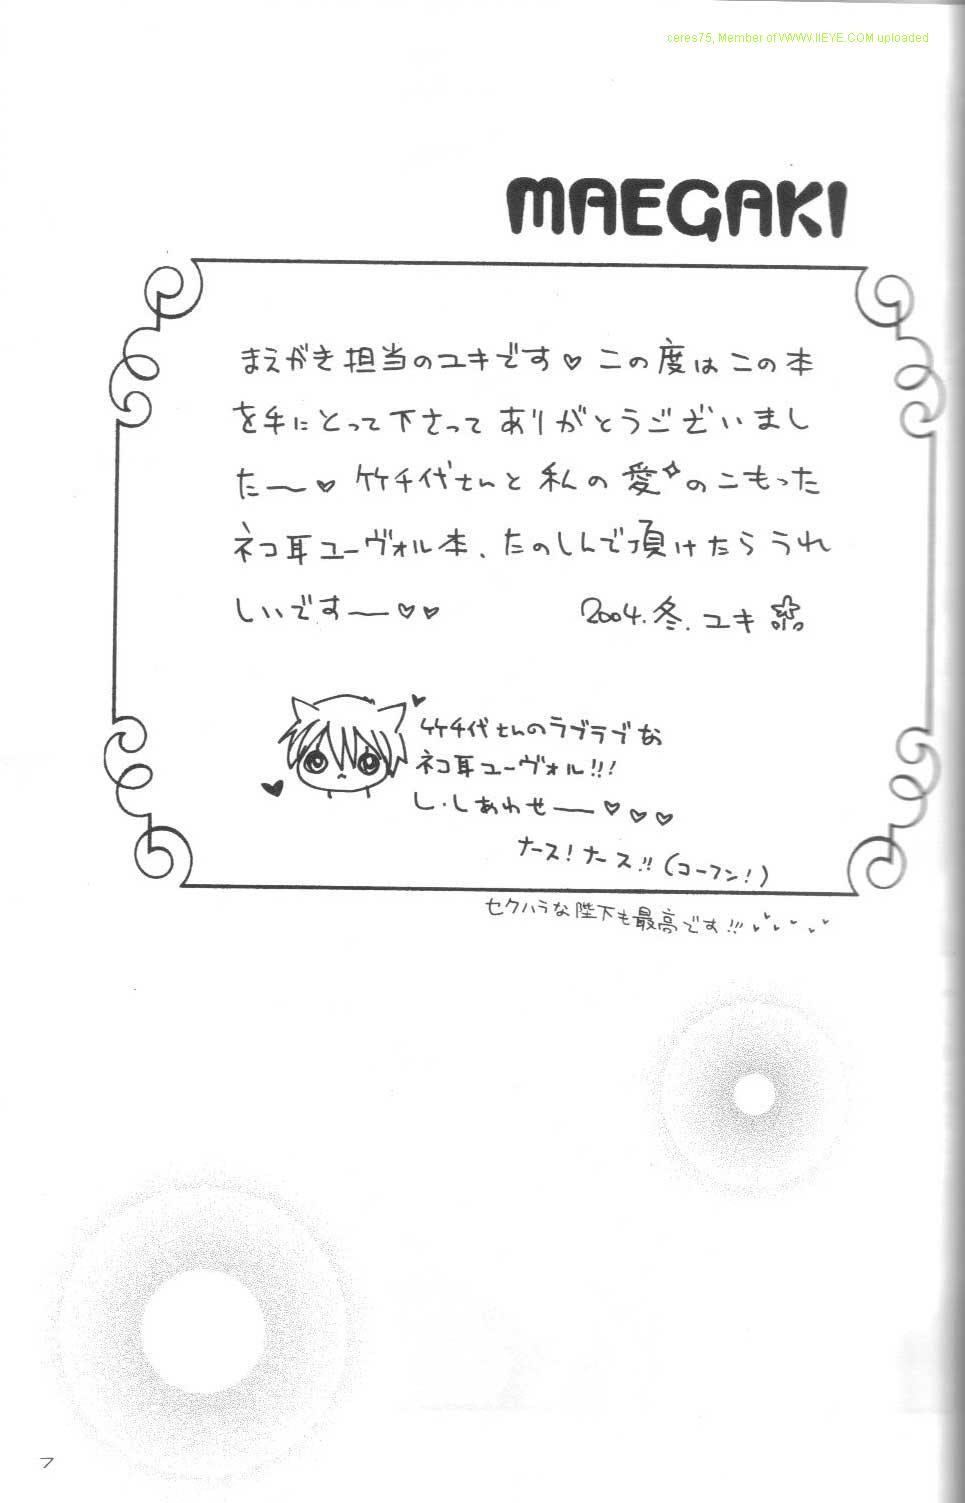 ceres75, Member of WWW.IIEYE.COM uploaded
MAEGAKI
まえがき担当のユキです♥ この度はこの本
を手にとって下さって ありがとうございまし
たー♥ 竹千代さんと 私の愛✧のこもった
ネコ耳ユーヴォル本、たのしんで頂けたら うれ
しいですー♡♡ 2004.冬.ユキ
竹千代さんのラブラブな
ネコ耳ユーヴォル!!!
し・しあわせー♡♡♡
ナース!ナース!!(コーフン!)
セクハラな陛下も最高です!!!
7